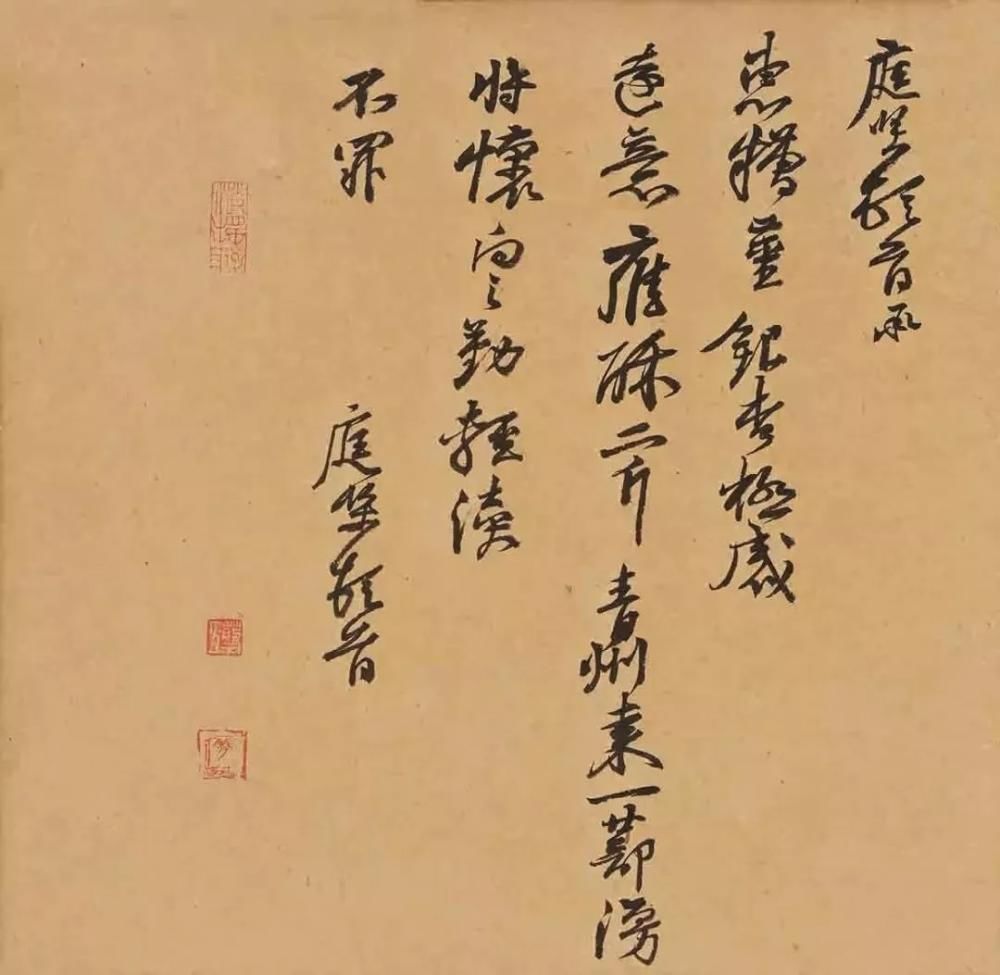 庭堅頓首承
惠糟薑銀杏極感
遠意雍酥二斤青州棗一蔀漫
將懷向之勤輕瀆
不罪　庭堅頓首